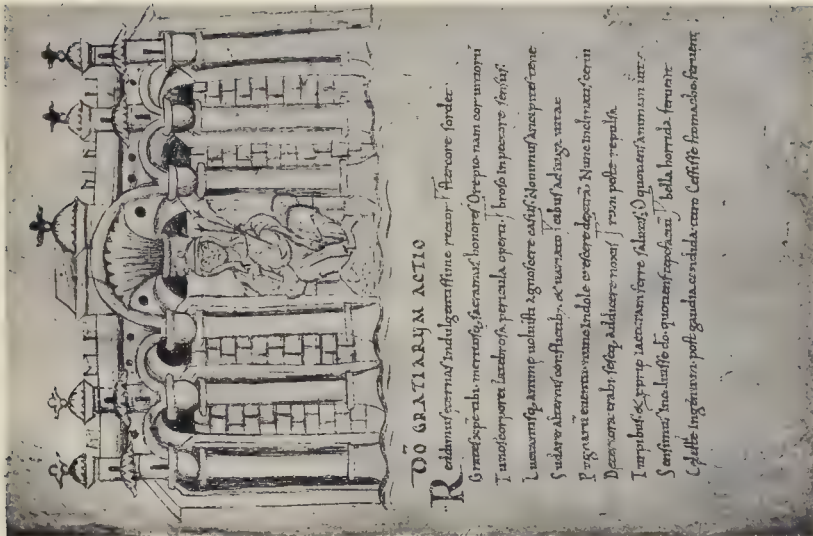 DŌ GRATIARVM ACTIO
Reddimus eternas indulgentissime rector stercore sordet
Grates xpe tibi meritosq; sacramus honores Ore pio nam cor uitiorū
Tu nos corporei latebrosa pericula operti broso in pectore sensus.
Luctantisq; animę uoluisti agnoscere casus; Nouimus ancipites
Sudare alternis conflictibus. & uariato tibus ad iuga uitae
Pugnarū euentu nunc indole crescere dextrā Nunc inclinatis uirtu
Deteriora trahi seseq; addicere noxis rum peste repulsa
Turpibus & proprię iacturam ferre salutis; O quotiens animam uitio
Sensimus incaluisse do quotiens tepefactū bella horrida feruent
Cęleste ingenium post gaudia candida tetro Cessisse stomacho feruent;